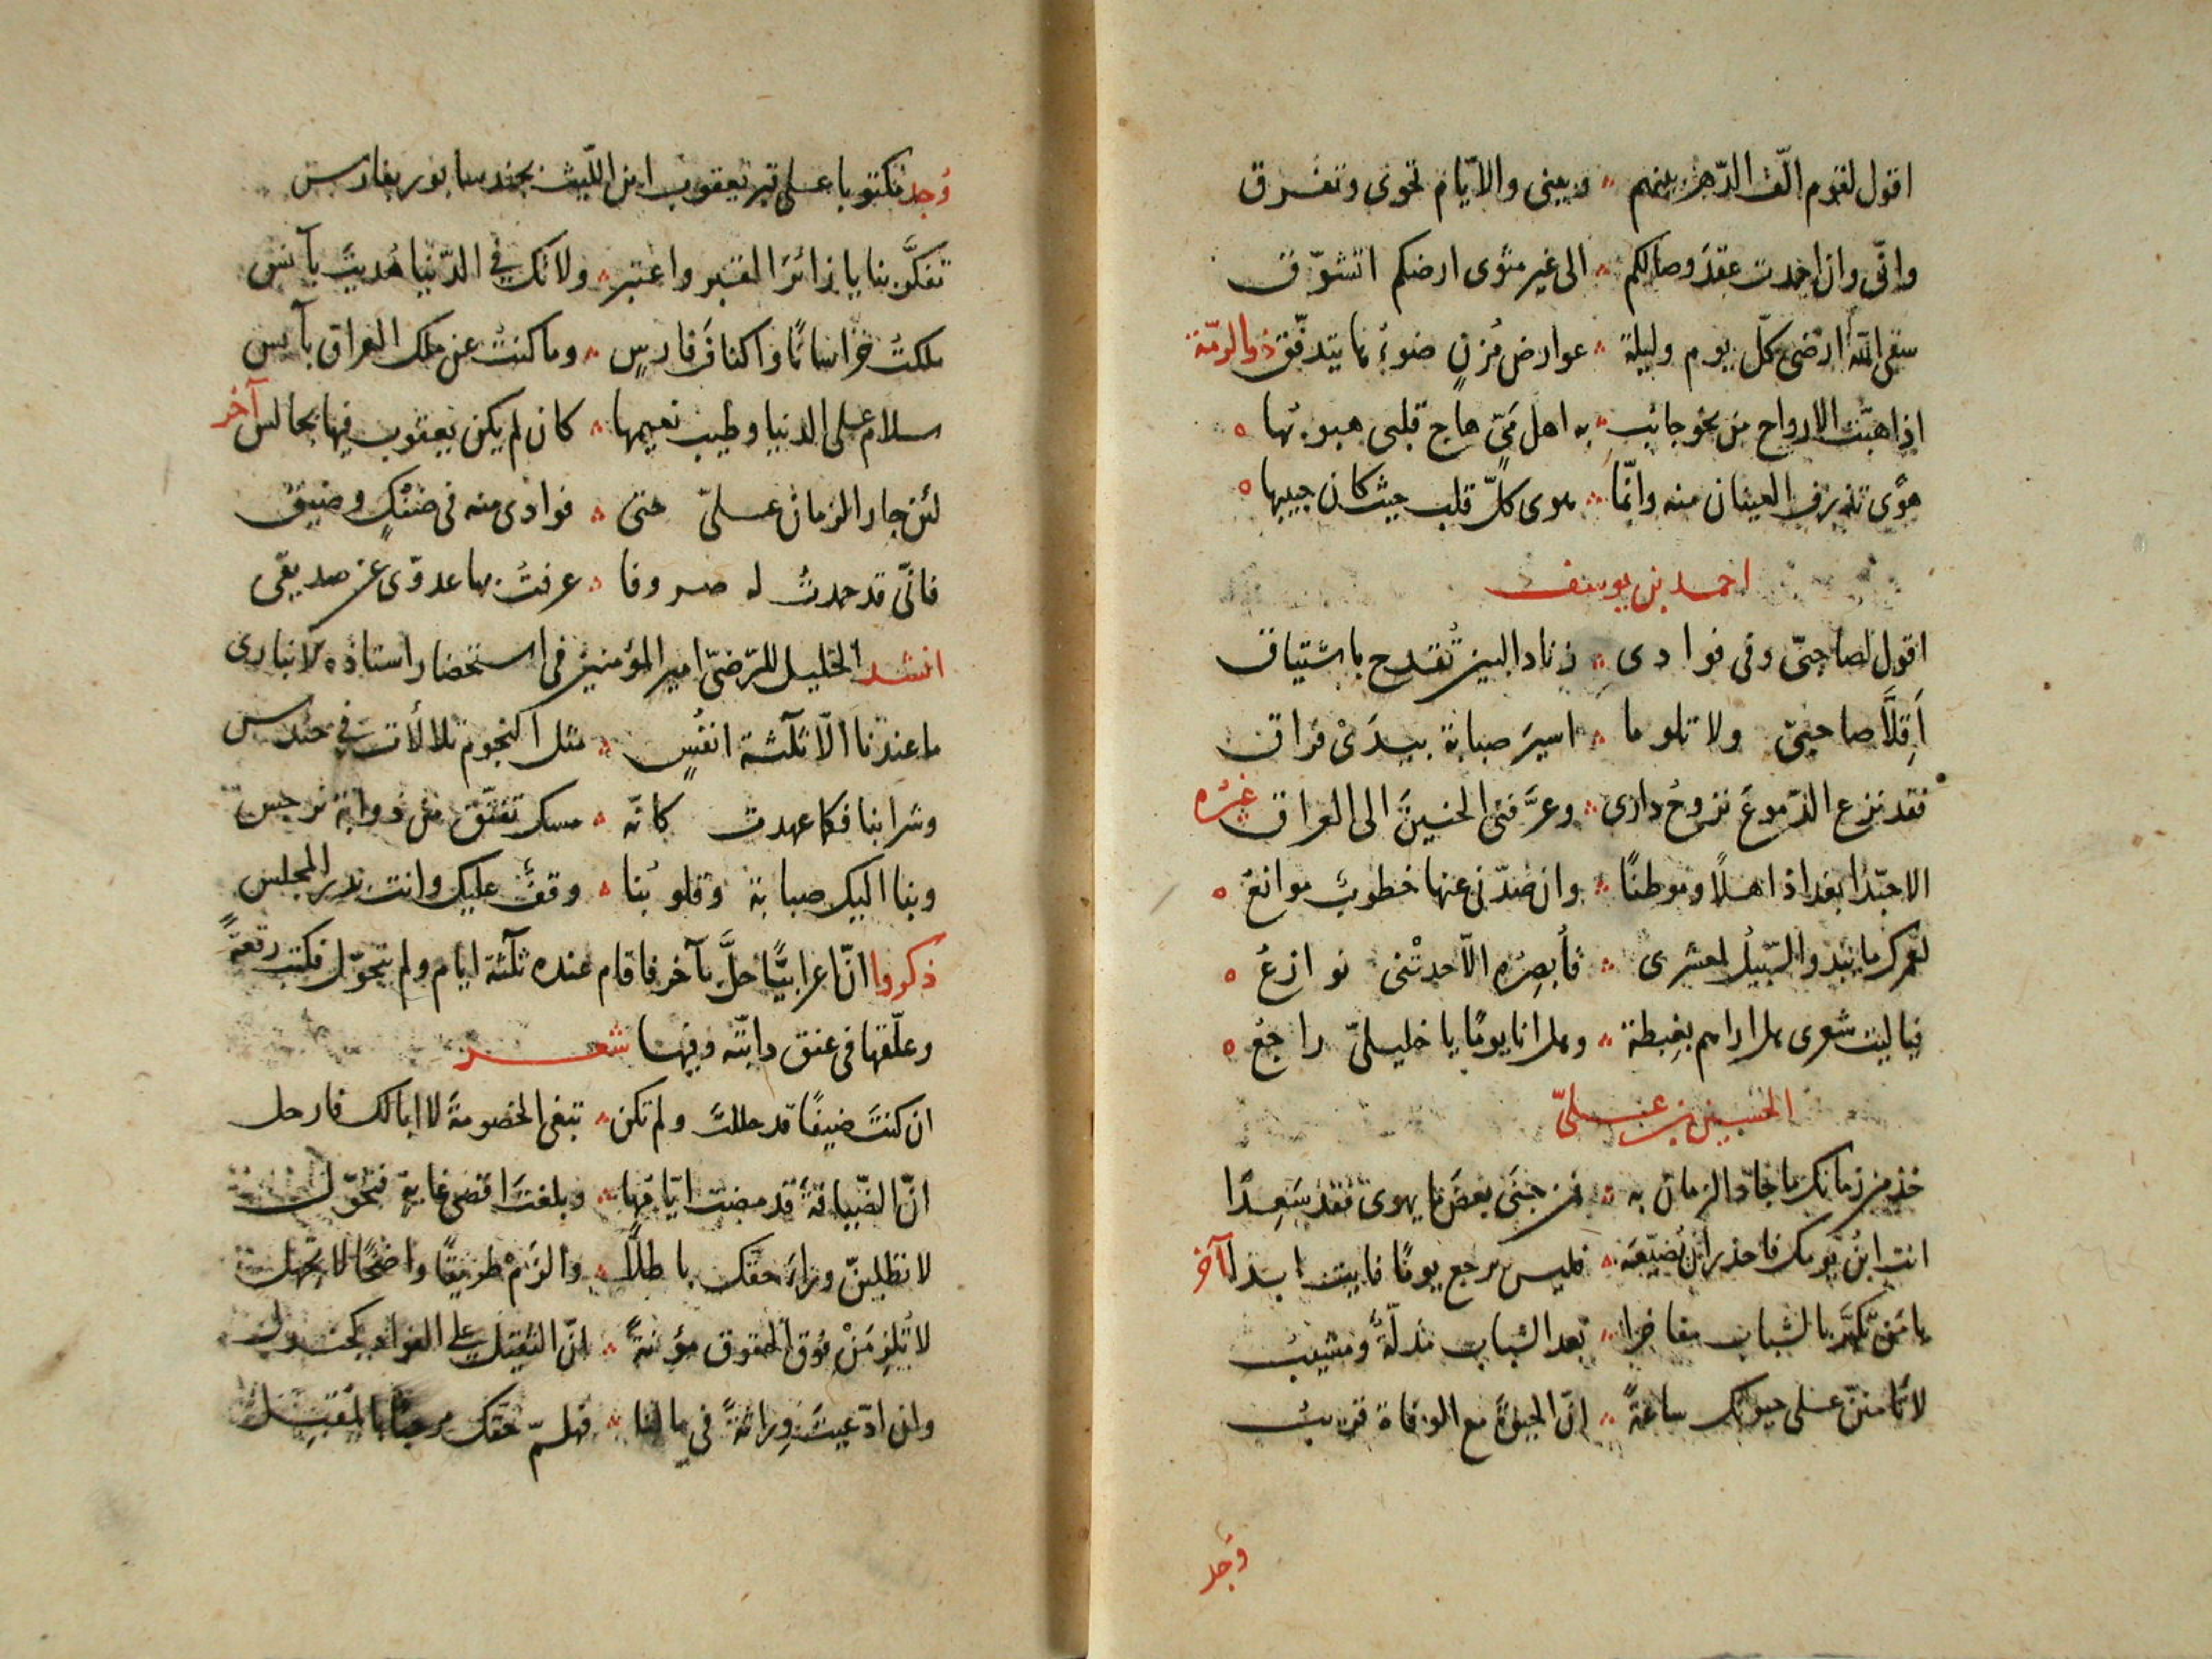 اقول لقوم الّف الدّهر بينهم ؞ وبيني والايّام تحوى وتفرق
وانّى وان احمدت عقد وصالكم ؞ الى غير مثوى ارضكم اتشوّق
سقى اللّه ارضى كلّ يوم وليلة ؞ عوارض مُزنٍ ضوءُها يتدفّق ذو الرمّة
اذا هبّت الارواح من نحو جانب ؞ به اهل مىّ هاج قلبى هبوبُها ه
هوًى تذرف العينان منه وانّما ؞ هوى كلّ قلب حيث كان حبيبها ه
احمد بن يوسف
اقول لصاحبىّ وفى فوادى ؞ زناد البين تُقدح باشتياق
اَقِلَّا صاحبىّ ولا تلوما ؞ اسيرَ صبابة بيدَىْ فراق
فقد نزع الدّموعَ نزوحُ دارى ؞ وعرَّفنى الحنينَ الى العراق غيرُه
الا حبّذا بغداذ اهلًا وموطنًا ؞ وان صدّنى عنها خطوبٌ موانعُ ه
لعمرك ما يبدو السّبيلُ لمعشرى ؞ فأُبصِرُه الّا حدتْنى نوازعُ ه
فياليت شعرى هل اراهم بغِبطة ؞ وهل انا يومًا يا خليلىّ راجعُ ه
الحسين بن علىّ
خذ من زمانك ما جاد الزمان به ؞ من جنَى بعضَ ما يهوى فقد سَعِدًا
انت ابنُ يومك فاحذر ان تُضيّعَه ؞ فليس يرجع يومًا فايت ابدا آخر
يا مَن تكبَّر بالشباب مفاخرا ؞ بعد الشباب مذلّةٌ ومشيبُ
لا تامننّ على حيوتك ساعةً ؞ انّ الحيوةَ مع الوفاة قريبُ
وُجد
وُجد مكتوبا على قبر يعقوب ابن اللّيث بجندسابور بفارس
تفكَّر بنا يا زائرَ القبر واعتبر ؞ ولاتك في الدّنيا هُديتَ بآنس
ملكتُ خراسانًا واكنافَ فارسٍ ؞ وما كنتُ عن ملك العراق بآيس
سلام على الدنيا وطيب نعيمها ؞ كان لم يكن يعقوب فيها بجالس آخر
لئن جار الزمان علىّ حتى ؞ فوادى منه فى ضنْكٍ وضيق
فانّى قد حمدتُ له صروفا ؞ عرفتُ بها عدوّى عن صديقى
انشد الخليل للرّضىّ امير المؤمنين فى استحضار استاذه الانبارى
ما عندنا الّا ثلثة انفُسٍ ؞ مثل النجوم تلألأت في حندس
وشرابنا فكما عهدت كانّه ؞ مسك تفتّق من ذوابة نرجس
وبنا اليك صبابة وقلوبُنا ؞ وقفٌ عليك وانت بدر المجلس
ذكروا انّ اعرابيًّا حلَّ بآخر فاقام عنده ثلثة ايام ولم يتحوّل فكتب رقعةً
وعلّقها فى عنق دابّته وفيها شعر
ان كنتَ ضيفًا قد حللتَ ولم تكن ؞ تبغى الخصومةَ لا ابا لك فارحل
انّ الضّيافةَ قد مضت ايّامُها ؞ وبلغتَ اقصى غاية فتحوّل
لا تطلبنّ وراء حقّك باطلًا ؞ والزَمْ طريقًا واضحًا لا تجهل
لا تُلزِمَنْ فوق الحقوق مؤنةً ؞ انّ الثقيل على الفؤاد كجندل
وان ادّعيتَ وِراثةً فى مالنا ؞ فهلمّ حقّك مرحبًا بالمقبل